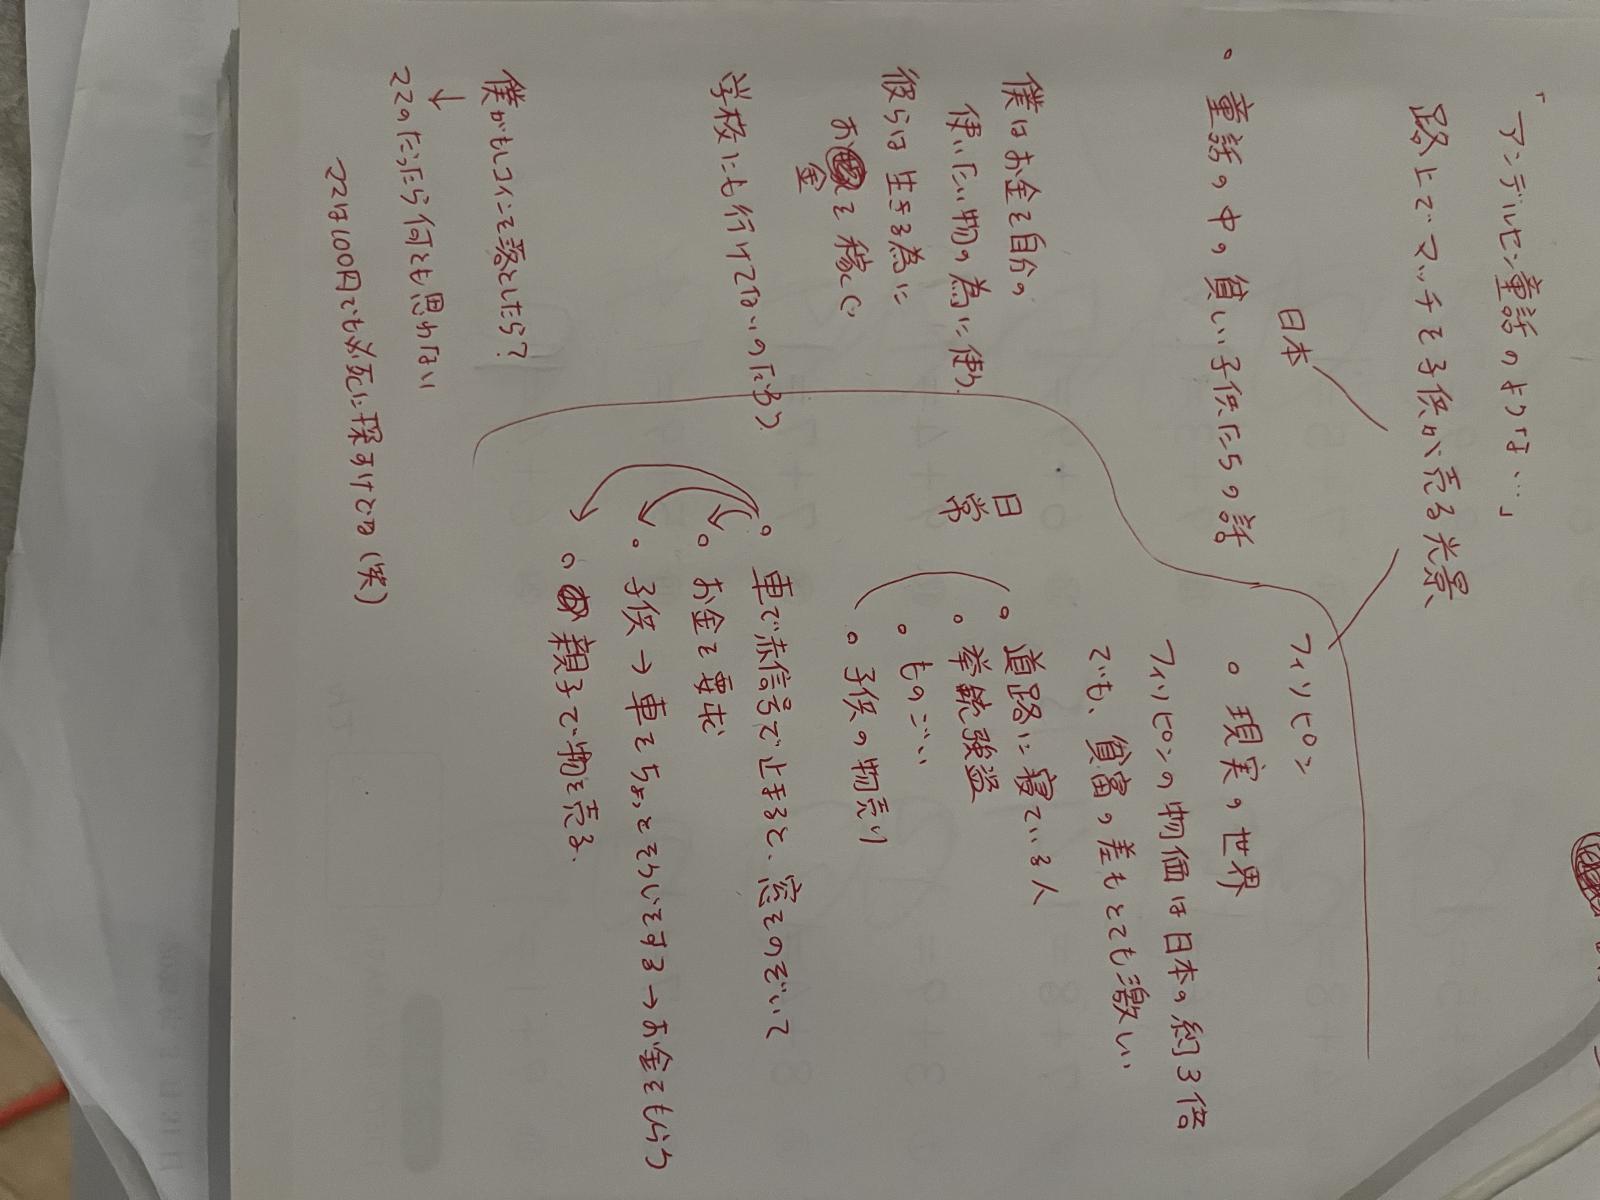 「アンデルセン童話のような…」
路上でマッチを子供が売る光景
日本
。童話の中の貧しい子供たちの話
僕はお金を自分の
使いたい物の為に使う
彼らは生きる為に
お金を稼ぐ
学校にも行けてないのだろう
僕がもしコインを落としたら?
↓
ココのだったら何とも思わない
ココは100円でも必死に探すけどな(笑)
フィリピン
。現実の世界
フィリピンの物価は日本の約3倍
でも、貧富の差もとても激しい
日常
。道路に寝ている人
。拳銃強盗
。ものごい
。子供の物売り
。車で赤信号で止まると、窓をのぞいて
。お金を要求
。子供→車をちょっとそうじする→お金をもらう
。親子で物を売る.